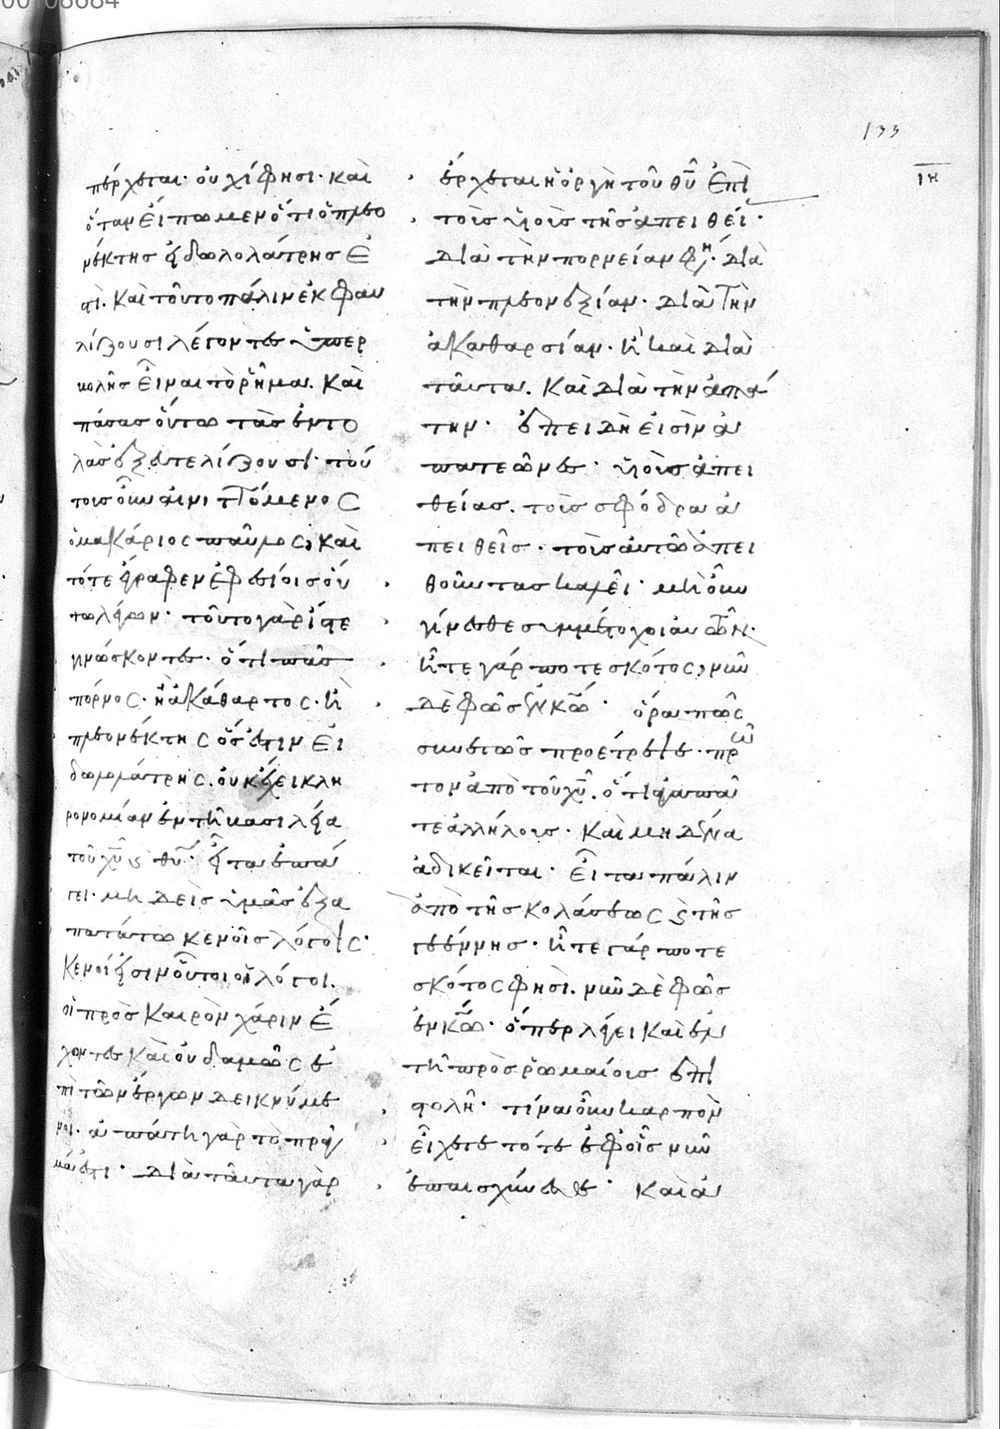 133
ιη
πέρχεται· οὐχί φησι· καὶ
ὅταν εἴπωμεν ὅτι ὁ πλεο
νέκτης εἰδωλολάτρης ἐ
στὶ. Καὶ τοῦτο πάλιν ἐκφαυ
λίζουσι λέγοντες ὑπερ
βολῆς εἶναι τὸ ῥῆμα. Καὶ
πάσας οὕτω τὰς ἐντο
λὰς ἐξευτελίζουσι· τού
τοις οὖν αἰνιττόμενος
ὁ μακάριος παῦλος, καὶ
τότε ἔγραφεν ἐφεσίοις οὕ
τω λέγων· τοῦτο γὰρ ἴστε
γινώσκοντες· ὅτι πᾶς
πόρνος· ἢ ἀκάθαρτος· ἢ
πλεονέκτης ὅς ἐστιν εἰ
δωλολάτρης. οὐκ ἔχει κλη
ρονομίαν ἐν τῆ βασιλεία
τοῦ χυ ς θυ· εἶτα ἐπά
γει· μηδεὶς ὑμᾶς ἐξα
πατάτω κενοῖς λόγοις·
Κενοί εἰσιν οὗτοι οἱ λόγοι.
οἱ πρὸς καιρὸν χάριν ἔ
χοντες καὶ οὐδαμῶς ἐ
πὶ τῶν ἔργων δεικνύμε
νοι. ἀπάτη γὰρ τὸ πρᾶγ
μά ἐστι· Διὰ ταῦτα γὰρ
ἔρχεται ἡ ὀργὴ τοῦ θυ ἐπὶ
τοῖς υἱοῖς τῆς ἀπειθεί·
Διὰ τὴν πορνείαν φη· Διὰ
τὴν πλεονεξίαν· Διὰ τὴν
ἀκαθαρσίαν· ἢ καὶ διὰ
ταῦτα. Καὶ διὰ τὴν ἀπά
την· ἐπειδὴ εἰσὶν ἀ
πατεῶνες· υἱοὺς ἀπει
θείας. τοὺς σφόδρα ἀ
πειθεῖς· τοὺς αὐτῶ ἀπει
θοῦντας καλεῖ· μὴ οὖν
γίνεσθε συμμέτοχοι αὐτῶν·
ἦτε γάρ ποτε σκότος, νῦν
δὲ φῶς ἐν κω· ὅρα πῶς
συνετῶς προέτρεψε· πρῶ
τον ἀπὸ τοῦ χυ. ὅτι ἀγαπᾶ
τε ἀλλήλους· Καὶ μηδένα
ἀδικεῖται· εἶτα πάλιν
ἀπὸ τῆς κολάσεως ς τῆς
γεέννης· ἦτε γάρ ποτε
σκότος φησι. νῦν δὲ φῶς
ἐν κω· ὅπερ λέγει καὶ ἐν
τῆ πρὸς ῥωμαίους ἐπι
στολῆ· τίνα οὖν καρπὸν
εἴχετε τότε ἐφοῖς νῦν
ἐπαισχύνεσθε· Καὶ ἀ